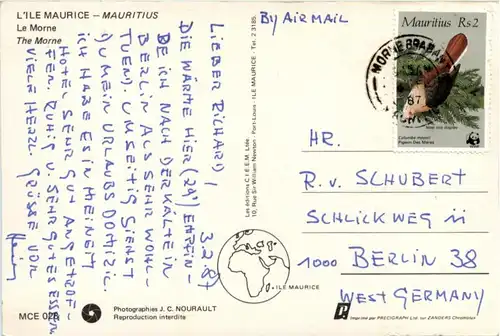 L'ILE MAURICE – MAURITIUS
Le Morne
The Morne
BY AIR MAIL
Mauritius Rs2
MORNE BRABANT
87
Nesoenas mayeri
Pigeon Des Mares
WWF
LIEBER RICHARD,
3.2.87
DIE WÄRME HIER (29°) EMPFIN-
DE ICH NACH DER KÄLTE IN
BERLIN ALS SEHR WOHL-
TUEND. UMSEITIG SIEHST
DU MEIN URLAUBSDOMIZIL.
ICH HABE ES IN MEINEM
HOTEL SEHR GUT ANGETROF-
FEN. RUHIG U. SEHR GUTES ESSEN
VIELE HERZL. GRÜSSE VON
Les éditions C.I.E.E.M. Ltée.
10, Rue Sir William Newton - Port-Louis - ILE MAURICE - Tel. 2 3185.
HR.
R. v. SCHUBERT
SCHLICKWEG 11
1000 BERLIN 38
WEST GERMANY
ILE MAURICE
MCE 028
Photographies J. C. NOURAULT
Reproduction interdite
Imprimé par PRECIGRAPH Ltd sur ZANDERS Chromolux